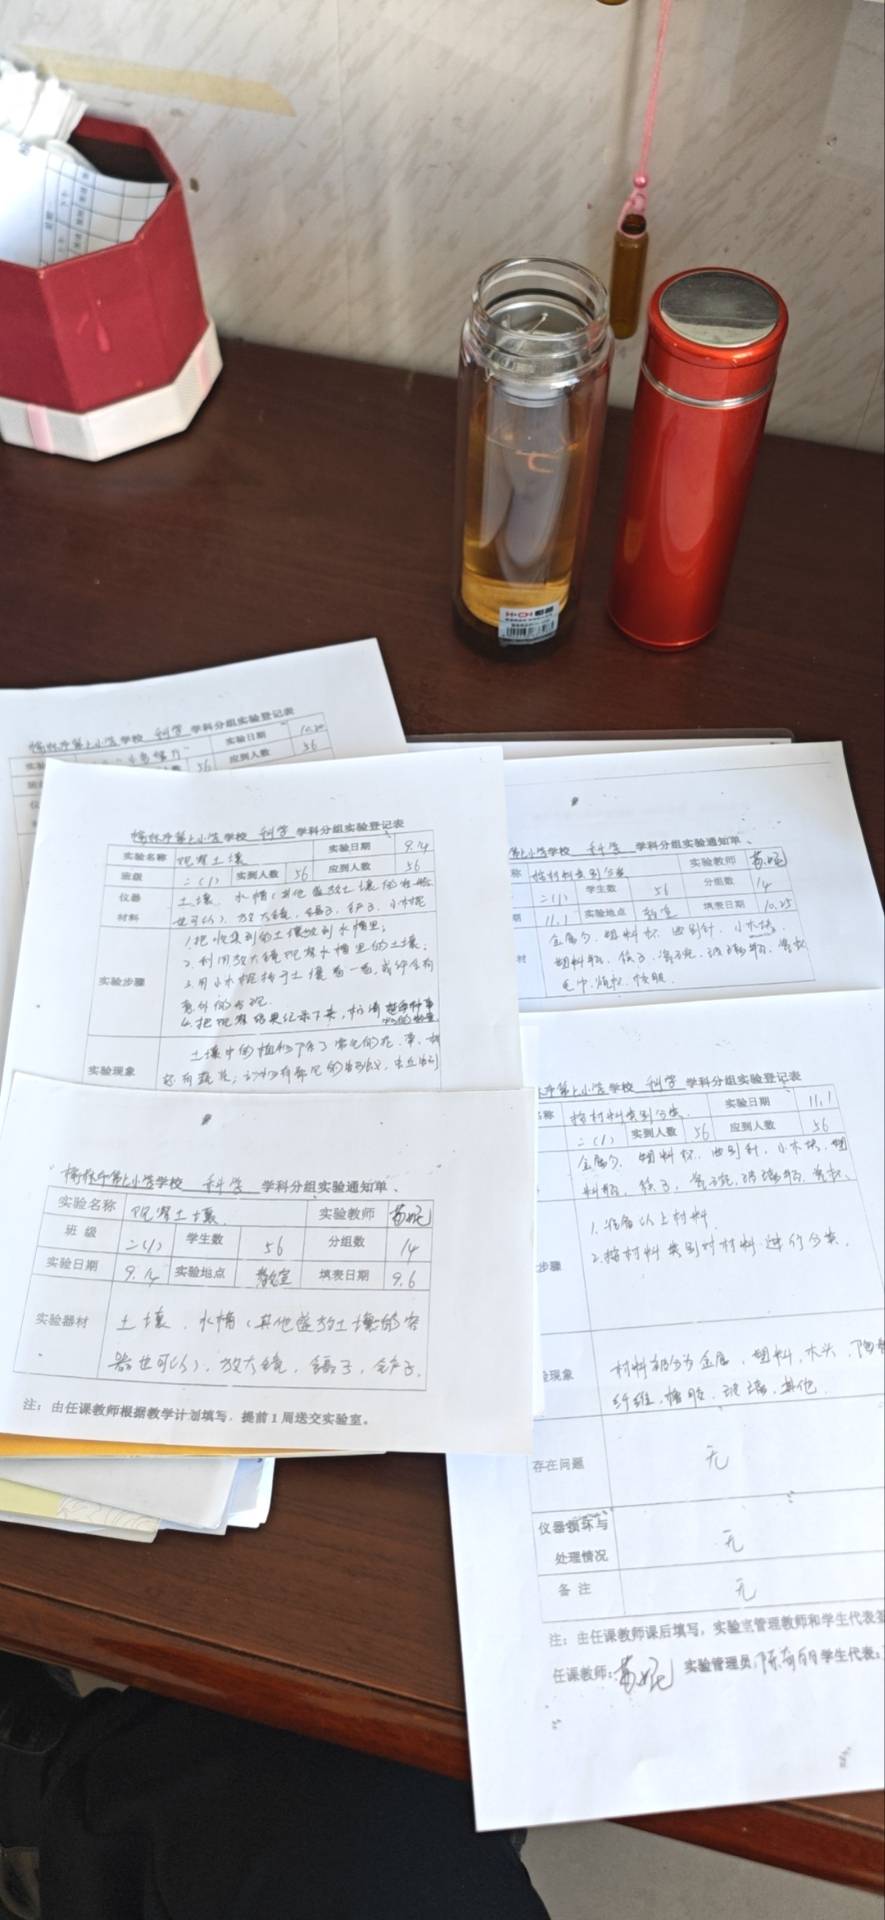 学校 科学 学科分组实验登记表
实验日期 10.20
56 应到人数 56
学校 科学 学科分组实验登记表
实验名称 观察土壤 实验日期 9.14
班级 二(1) 实到人数 56 应到人数 56
仪器材料 土壤、水槽(其他盛放土壤的容器也可以)、放大镜、镊子、铲子、小木棍
实验步骤 1.把收集到的土壤放到水槽里;
2.利用放大镜观察水槽里的土壤;
3.用小木棍拨开土壤看一看,或许会有意外的发现.
4.把观察结果记录下来,
实验现象 土壤中的植物除了常见的花、草、树
学校 科学 学科分组实验通知单
实验名称 观察土壤 实验教师
班级 二(1) 学生数 56 分组数 14
实验日期 9.14 实验地点 教室 填表日期 9.6
实验器材 土壤、水槽(其他盛放土壤的容
器也可以)、放大镜、镊子、铲子.
注:由任课教师根据教学计划填写,提前1周送交实验室。
学校 科学 学科分组实验通知单
称 按材料类别分类 实验教师
二(1) 学生数 56 分组数 14
期 11.1 实验地点 教室 填表日期 10.25
材 金属勺、塑料杯、曲别针、小木块、
塑料瓶、筷子、瓷碗、玻璃瓶、
毛巾、纸杯、
学校 科学 学科分组实验登记表
名称 按材料类别分类. 实验日期 11.1
二(1) 实到人数 56 应到人数 56
金属勺、塑料杯、曲别针、小木块、塑
料瓶、筷子、瓷碗、玻璃瓶、
步骤 1.准备以上材料.
2.按材料类别对材料进行分类.
验现象 材料部分为金属、塑料、木头、陶瓷
纤维、橡胶、玻璃、其他.
存在问题 无
仪器损坏与
处理情况 无
备注 无
注:由任课教师课后填写,实验室管理教师和学生代表签
任课教师: 实验管理员: 学生代表: